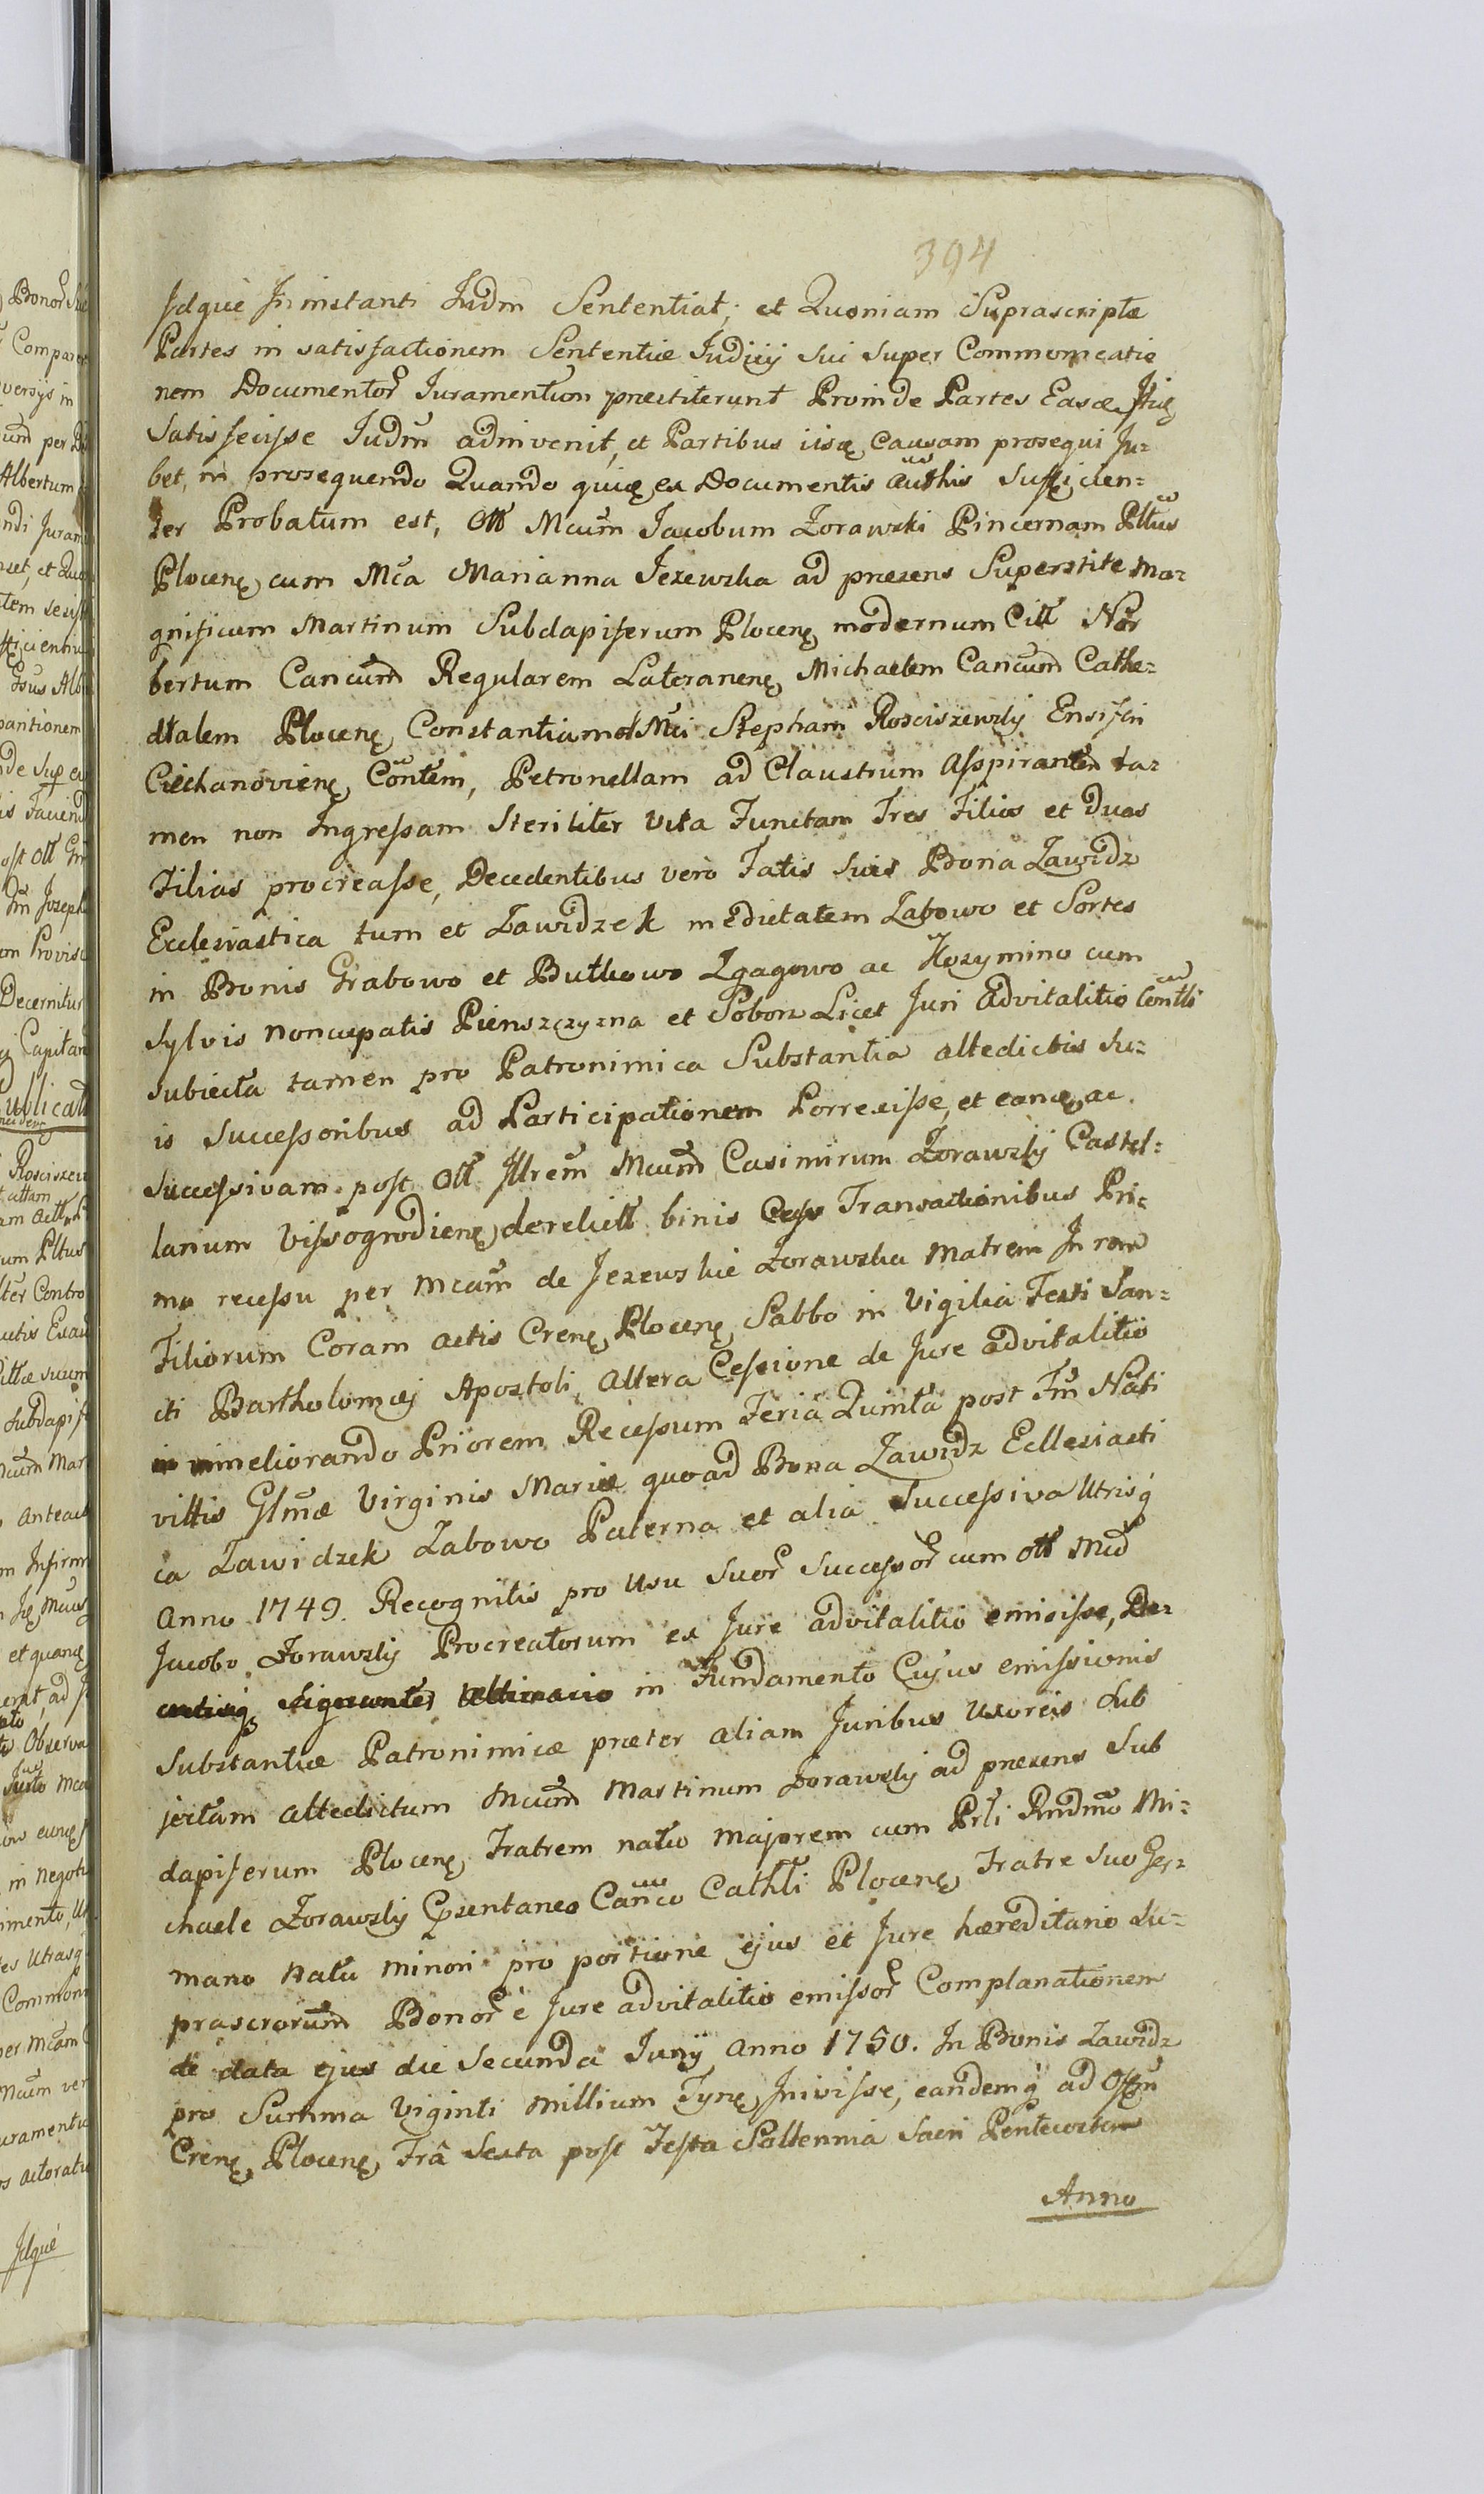 394
Idque In instanti Iudm Sententiat; et Quoniam Suprascriptæ
Partes in satisfactionem Sententiæ Iudicij sui super Commomicatio
nem Documentor Iuramentum præstiterunt Proinde Partes Easdę
Satisfecisse Iudm adinvenit, et Partibus iisdę Causam prosequi Ju-
bet, in prosequendo Quando quidę ex Documentis authis sufficien-
ter Probatum est, Oll Mcum Jacobum Zorawski Pincernam Pltus
Plocenę cum Mca Marianna Jezewska ad præsens Superstite Ma-
gnificum Martinum Subdapiferum Plocenę modernum Cill Nor
bertum Cancum Regularem Lateranenę Michaelem Cancum Cathe-
dralem Plocenę Constantiam Mci Stephani Rosciszewsky Ensifri
Ciechanovienę Contem, Petronellam ad Claustrum Asspirantem ta-
men non Ingressam Steriliter Vita Functam Tres Filios et Duas
Filias procreasse, Decedentibus vero Fatis suis Bona Zawidz
Ecclesiastica tum et Zawidzek medietatem Zabowo et Sortes
in Bonis Grabowo et Butkowo Zgagowo ac Kozymino cum
Sylvis noncupatis Pienszczyzna et Sobon Licet Juri Advitalitio
subiecta tamen pro Patronimica Substantia altedictis su-
is Successoribus ad Participationem Porrexisse, et eandę ac
Successivam post Oll Illrem Mcum Casimirum Zorawsky Castel-
lanum Vissogrodienę derelict binis Transactionibus Pri-
mo recessu per Mcam de Jezewskie Zorawska Matrem In rem
Filiorum Coram actis Crenę Plocenę Sabbo in Vigilia Festi San-
cti Bartholomæj Apostoli, altera Cessione de Jure advitalitio
in meliorando Priorem Recessum Feria Quinta post Fm Nati
vittis Glmæ Virginis Mariæ quoad Bona Zawidz Ecclesiasti
ca Zawidzek Zabowo Paterna et alia Successiva Utrisq
Anno 1749. Recognitis pro usu Suor Successor cum Oll Mco
Jacobo Zorawsky Procreatorum ex Jure advitalitio emisisse,
in Fundamento Cujus emissionis
Substantiæ Patronimicæ præter aliam Juribus Uxoreis sub
jectam altedictum Mcum Martinum Zorawsky ad præsens Sub
dapiferum Plocenę Fratrem natu majorem cum Prli Rndmo Mi-
chaele Zorawsky Canco Cathli Plocenę Fratre suo Ger-
mano Natu minori pro portione ejus et Jure hæreditario su-
prascrorum Bonor e Jure advitalitio emissor Complanationem
de data ejus die Secunda Junÿ anno 1750. In Bonis Zawidz
pro Summa Viginti Millium Fynę Inivisse, eandemq ad Offm
Crenę Plocenę Fra Sexta post Festa Sollennia Sacri Pentecosten
Anno